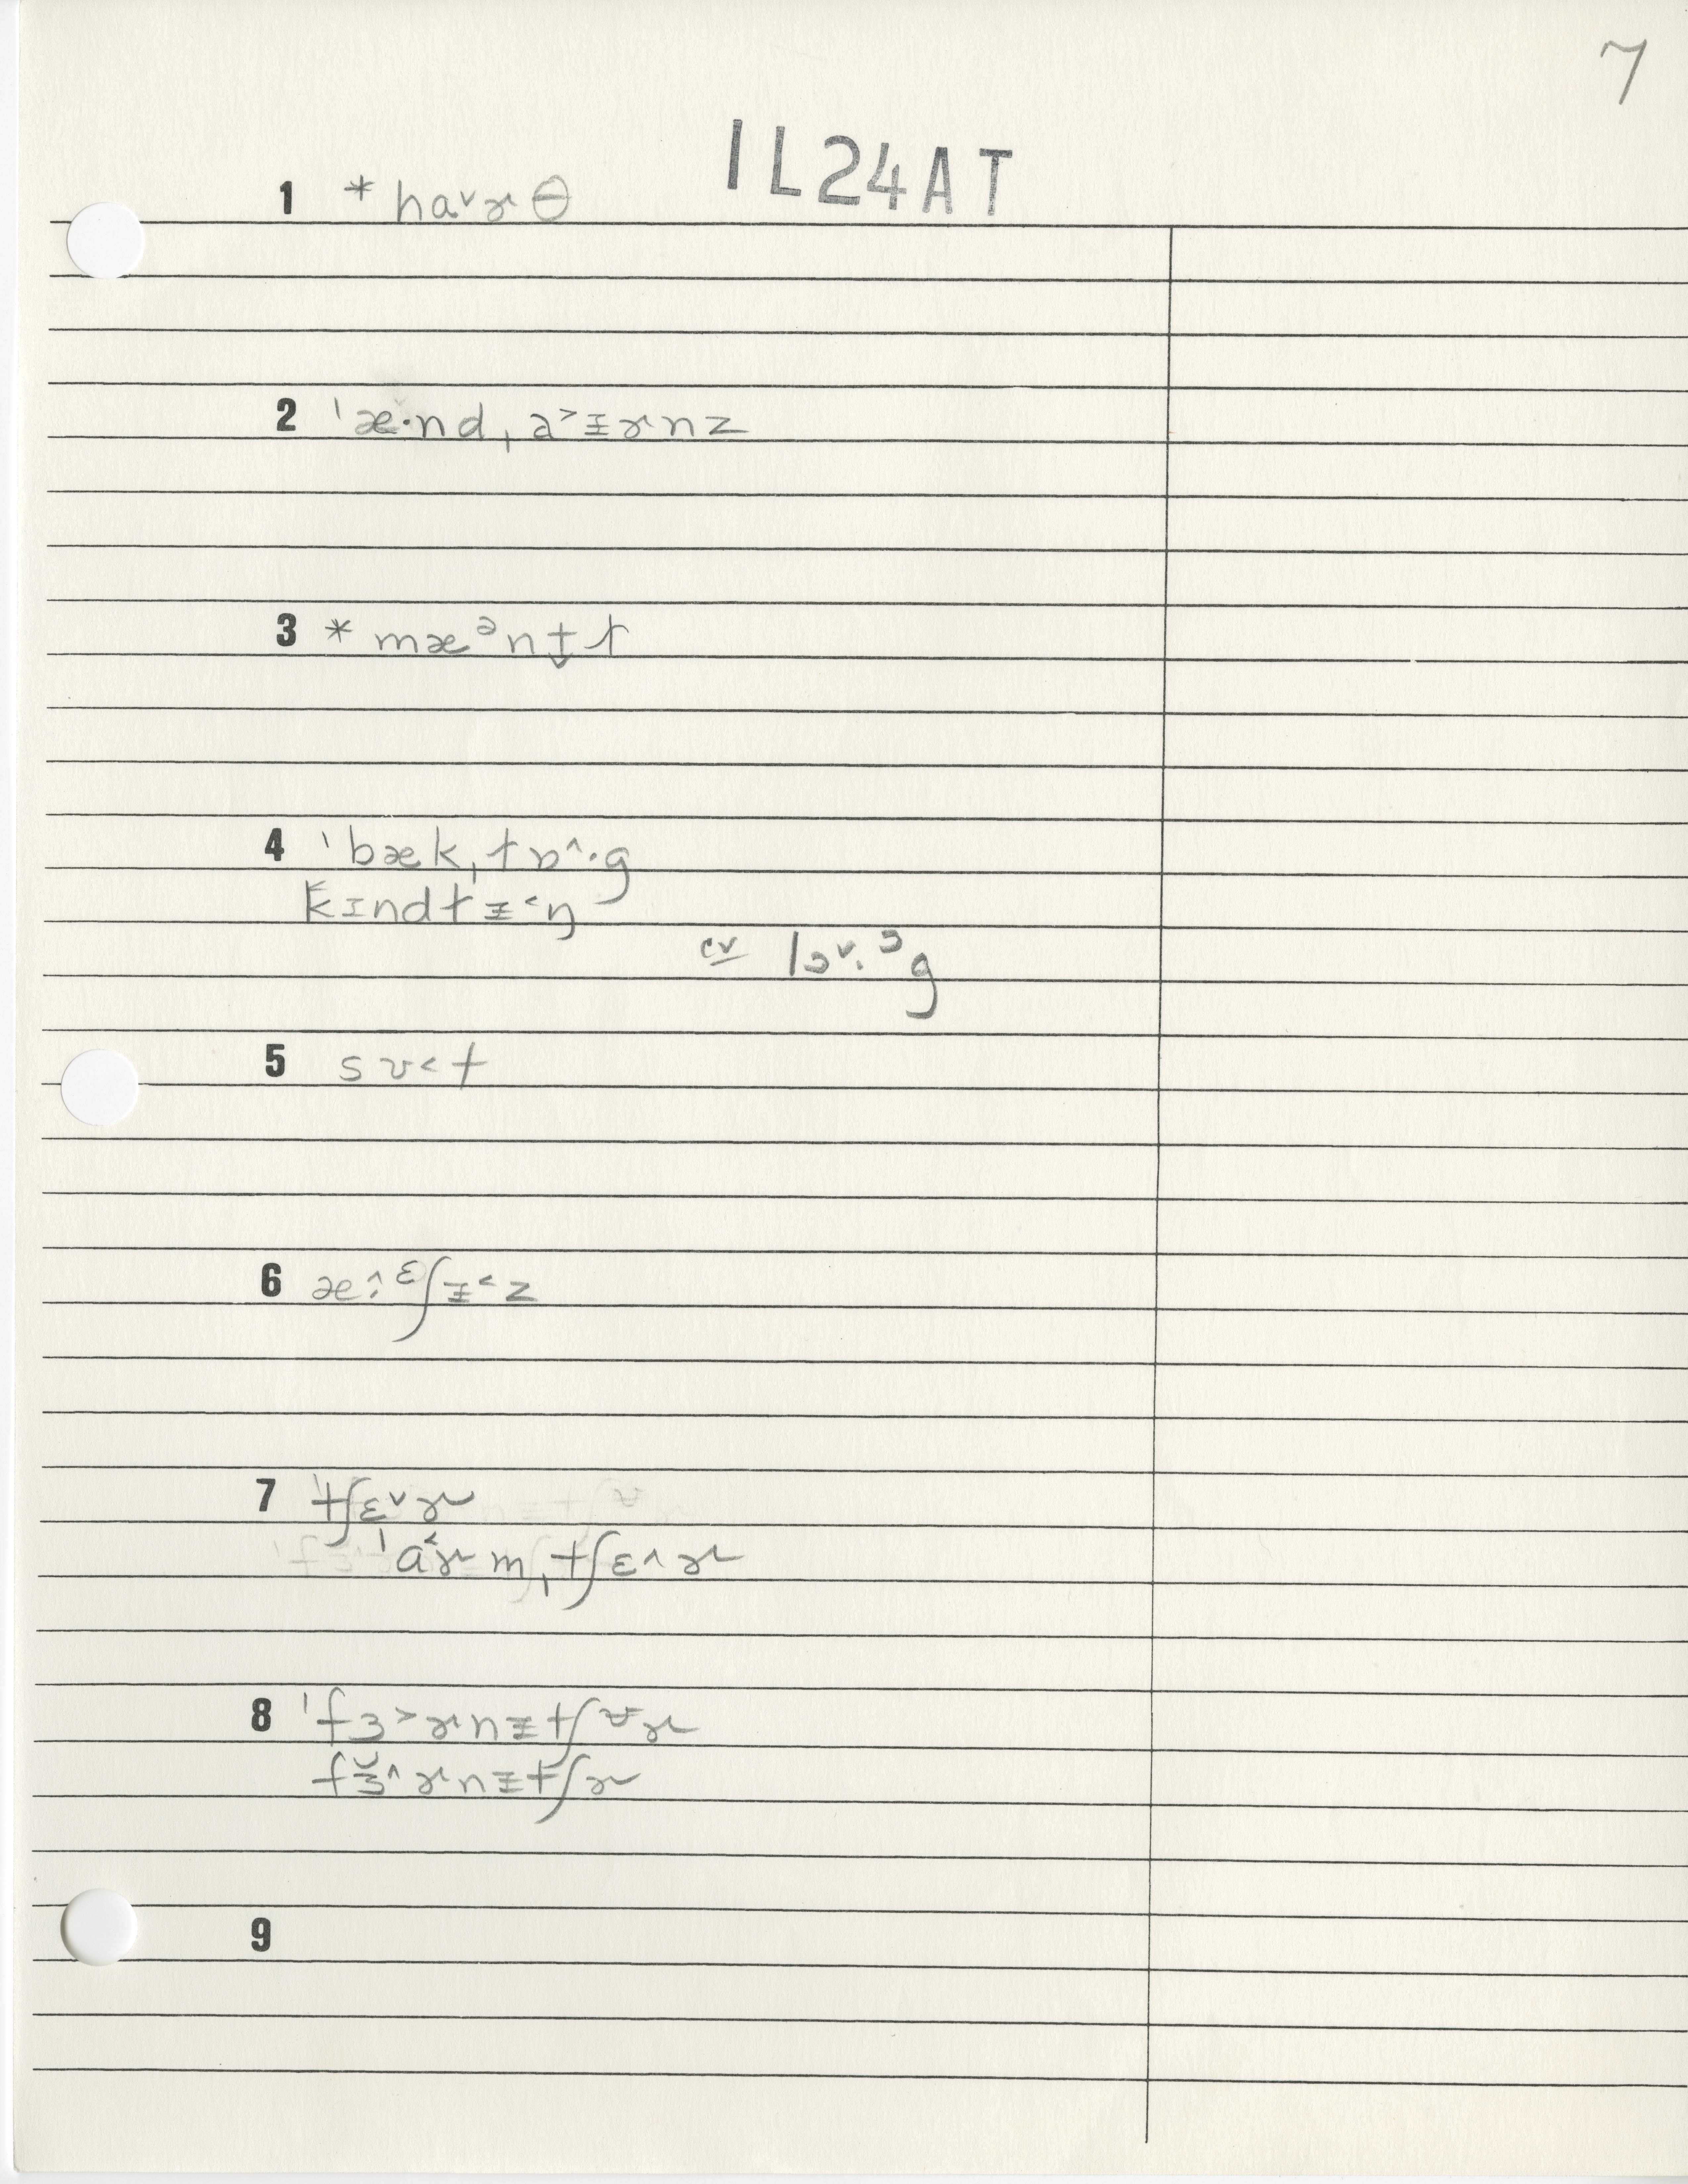 7
1L24AT
1 * haᵛɚθ
2 ˈæ·nd ˌa˃ɪ̵ɚnz
3 * mæᵊnt̬ɫ
4 ˈbæk ˌtɒ^·g
kɪndlɪ̵˂ŋ
cv lɔᵛ·ᵓg
5 sʊ˂t
6 æ^·ᵋʃɪ̵˂z
7 ˈtʃɛᵛɚ
ˈa˂ɚm ˌtʃɛ^ɚ
8 ˈfɜ˃ɚnɪ̵tʃʊ̵ɚ
fɜ̆^ɚnɪ̵tʃɚ
9